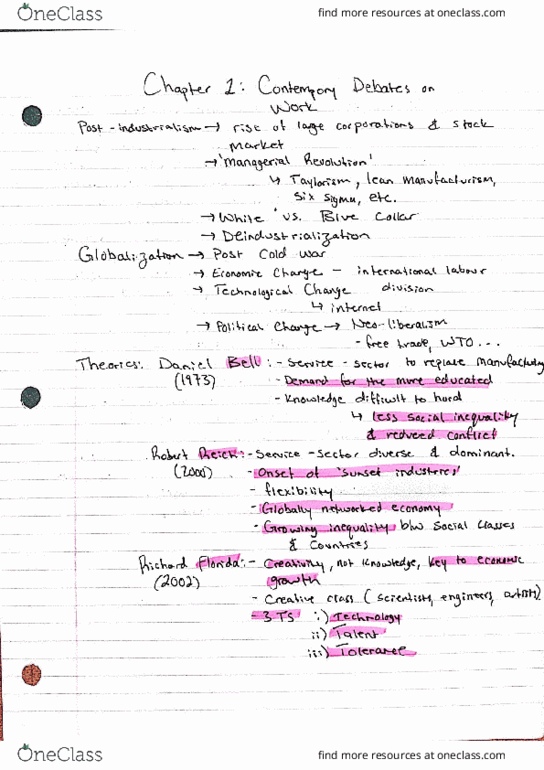 OneClass
find more resources at oneclass.com
Chapter 2: Contempory Debates on
Work
Post-industrialism → rise of large corporations & stock
market
→ 'Managgerial Revolution'
↳ Taylorism, lean manufacturism,
six sigma, etc.
→ White vs. Blue Collar
→ Deindustrialization
Globalization → Post Cold War
→ Economic Change - international labour
→ Technological Change division
↳ internet
→ Political Change → Neo-liberalism
- free trade, WTO...
Theorics: Daniel Bell: - Service-sector to replace manufacturing
(1973) - Demand for the more educated
- Knowledge difficult to hord
↳ less social inequality
& reduced conflict
Robert Reich: - Service-sector diverse & dominant.
(2000) - Onset of 'sunset industeries'
- flexibility
- Globally networked economy
- Growing inequality b/w Social Classes
& Countries
Richard Florida: - Creativity, not knowledge, key to economic
(2002) growth
- Creative class (scientists, engineers, artists)
- 3 TS i) Technology
ii) Talent
iii) Tolerance
OneClass
find more resources at oneclass.com